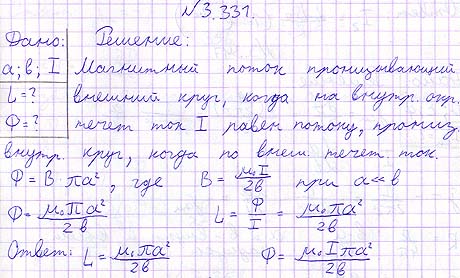 №3.331.
Дано: Решение:
a; b; I Магнитный поток пронизывающий
L=? внешний круг, когда на внутр. окр.
Φ=? течет ток I равен потоку, прониз.
внутр. круг, когда по внеш. течет ток.
Φ = B πa², где B = μ₀I/2b при a≪b
Φ = μ₀Πa²/2b L = Φ/I = μ₀πa²/2b
Ответ: L = μ₀πa²/2b Φ = μ₀Iπa²/2b